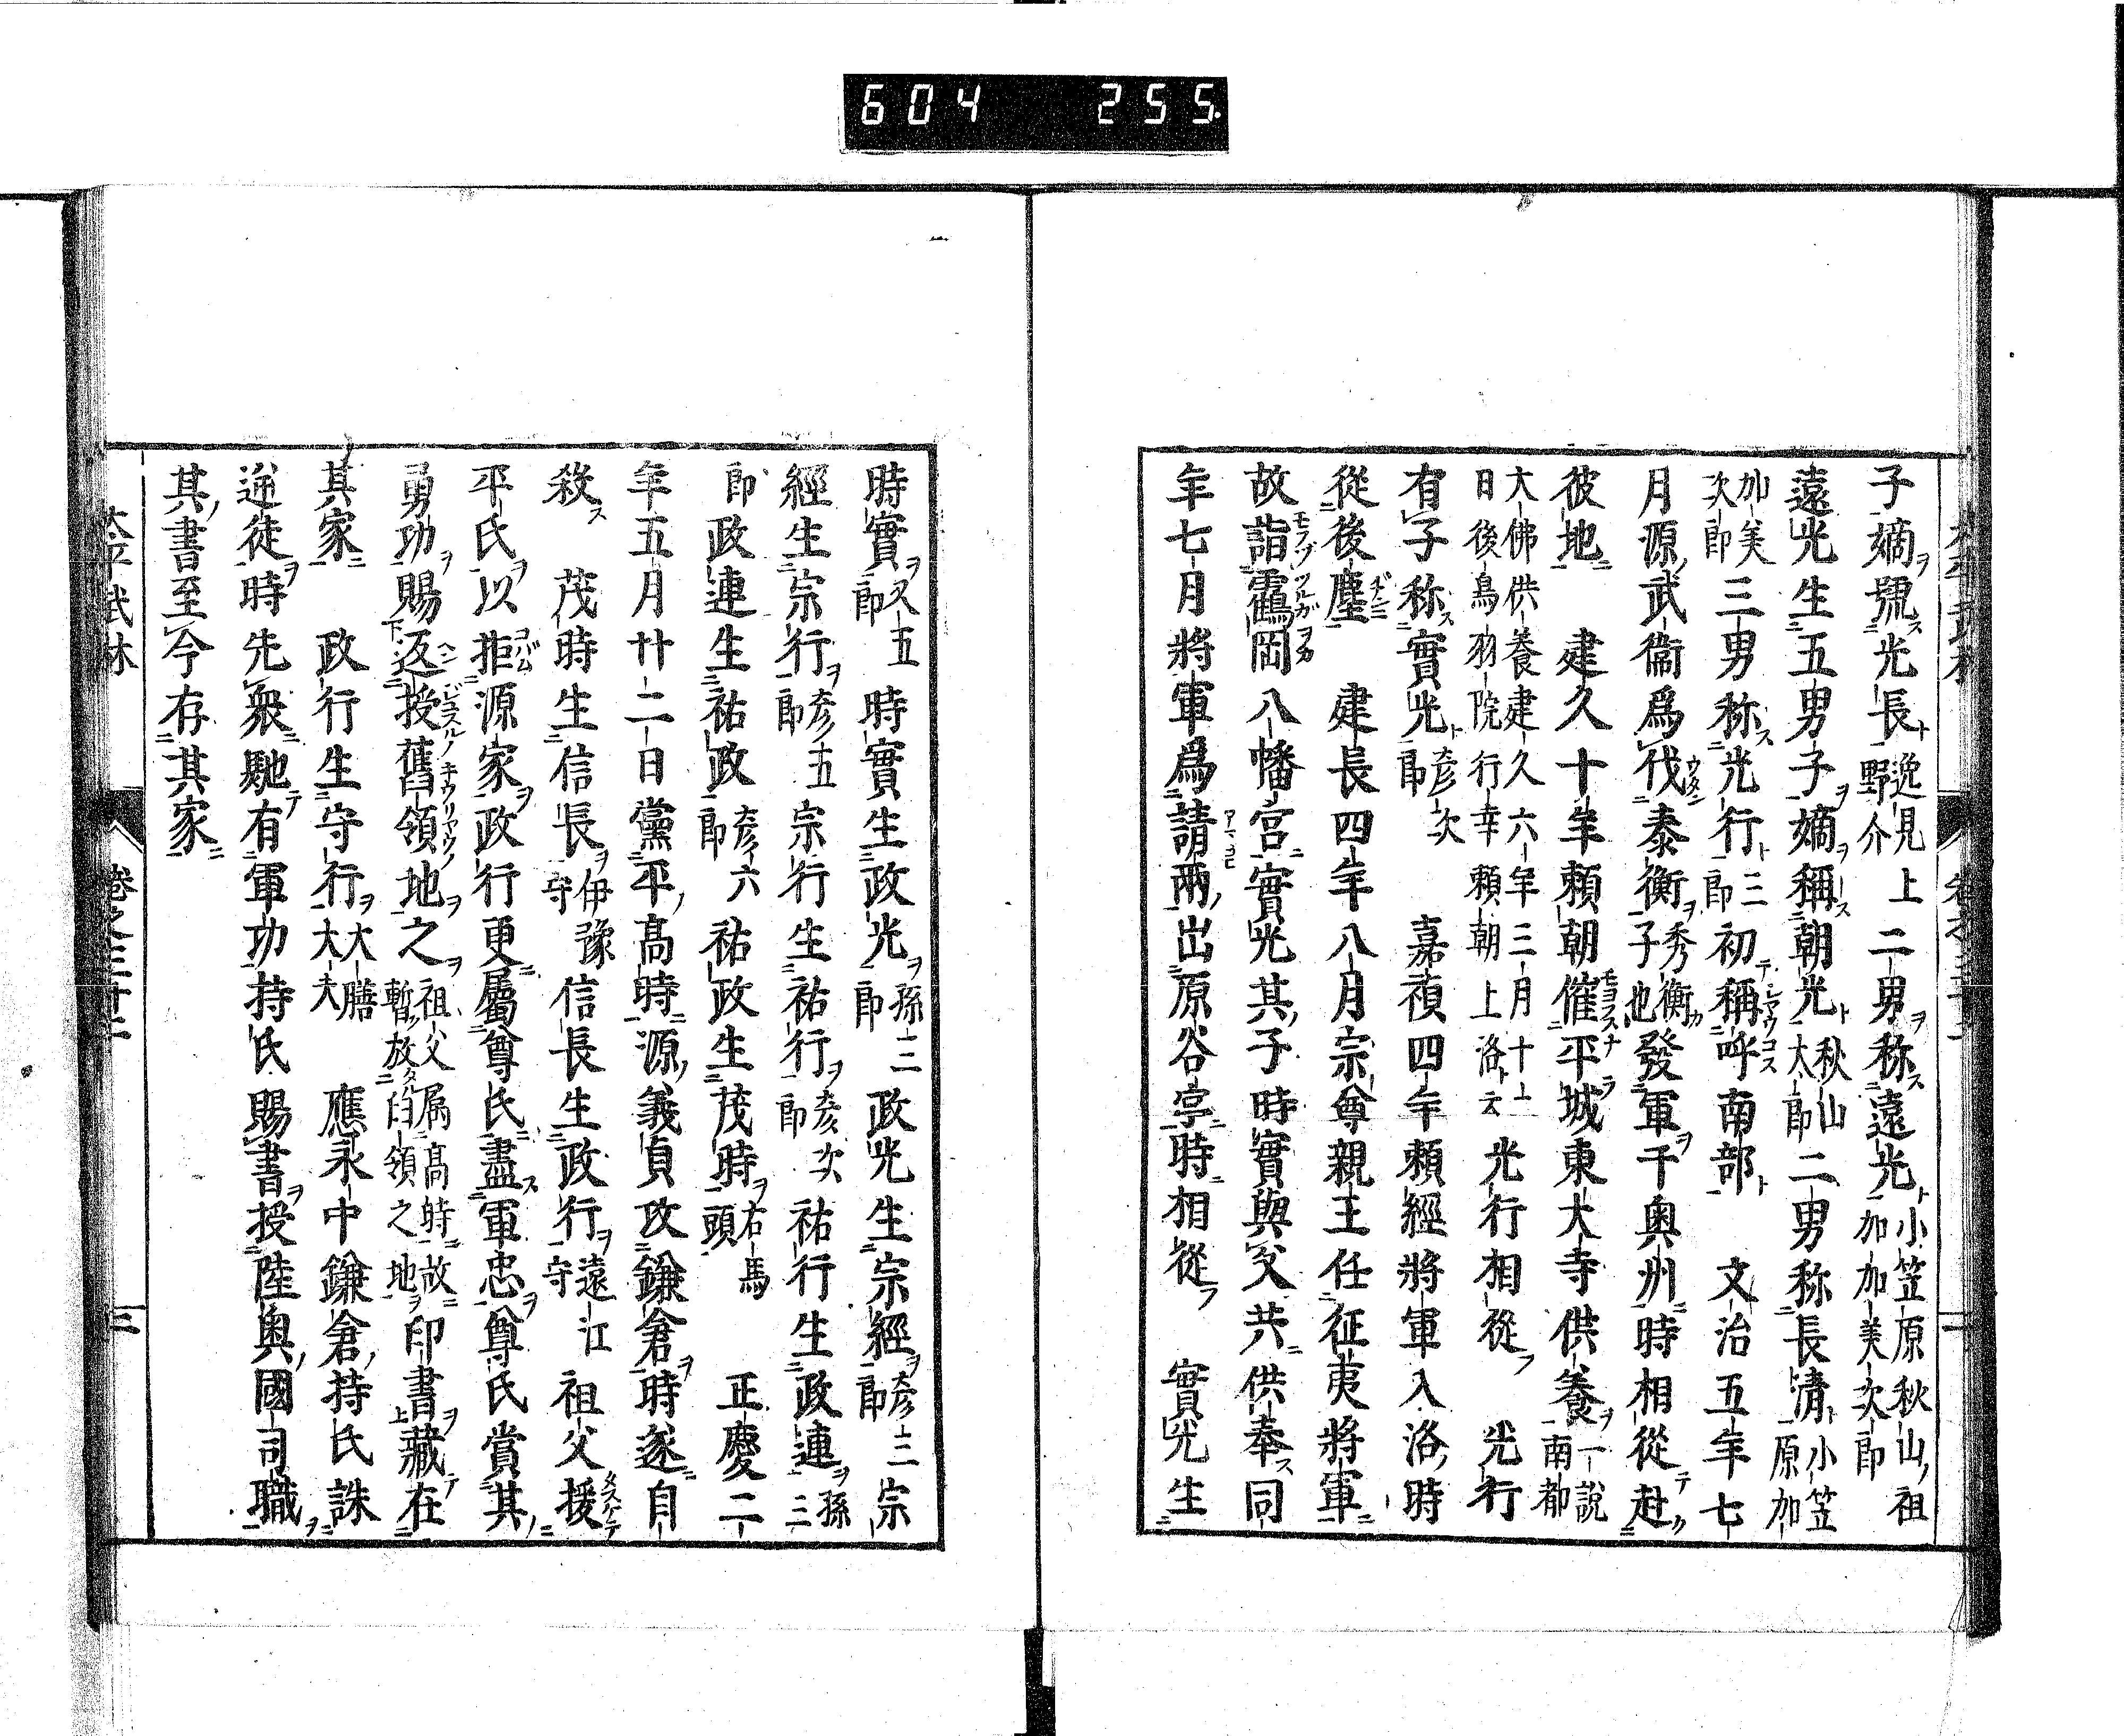 604 255
子嫡ヲ號ス光長ト逸見上野介二男ヲ称ス遠光ト小笠原秋山ノ祖加加美次郎
遠光生五男子ヲ嫡ヲ稱ス朝光ト秋山太郎二男称長清ト小笠原加
加美次郎三男称ス光行ト三郎初テ稱呼南部ト 文治五年七
月源ノ武衞爲伐泰衡ヲ秀衡カ子也發軍ヲ于奥州時相從テ赴ク
彼地 建久十年頼朝催平城東大寺供養ヲ一說南都
大佛供養建久六年三月十二日後鳥羽院行幸頼朝上洛ト云光行相從フ 光行
有子称ス實光ト彦次郎 嘉禎四年頼經將軍入洛ノ時
從後塵 建長四年八月宗尊親王任征夷將軍
故詣靏岡八幡宮實光其ノ子時實與父共供奉ス同
年七月將軍爲請雨ノ出原谷亭時相從フ 實光生
時實ヲ又五郎 時實生政光ヲ孫三郎 政光生宗經ヲ彦三郎 宗
經生宗行ヲ彦五郎 宗行生祐行ヲ彦次郎 祐行生政連ヲ孫三
郎 政連生祐政彦六郎 祐政生茂時ヲ右馬頭 正慶二
年五月廿二日黨平ノ高時源ノ義貞攻鎌倉ヲ時遂自
殺ス 茂時生信長ヲ伊豫守 信長生政行ヲ遠江守 祖父援
平氏ヲ以拒源家ヲ政行更屬尊氏盡ス軍忠ヲ尊氏賞其ノ
勇功ヲ賜返授舊領地ヲ之ヲ祖父属高時故暫放タル旧領之地ヲ印書ヲ藏テ在
其家 政行生守行ヲ大膳大夫 應永中鎌倉ノ持氏誅
逆徒ヲ時先衆馳テ有軍功持氏賜書ヲ授陸奥ノ國司職ヲ
其ノ書至今存其家
太平武林 卷之三十二 三